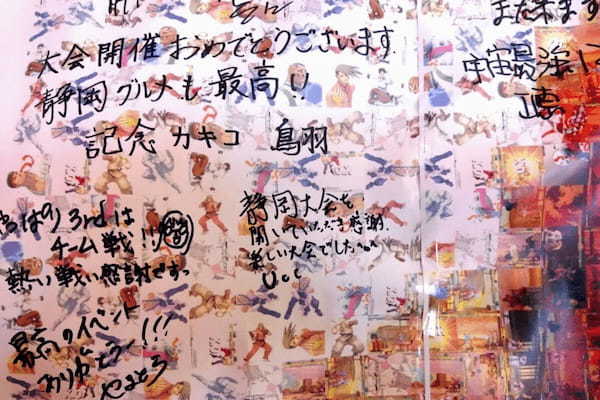 また来ます
大会開催おめでとうございます
静岡グルメも最高!!
宇宙最強
記念カキコ 鳥羽
やはり3rdは
チーム戦!!
熱い戦い感謝です
静岡大会を
開いていただき感謝
楽しい大会でした
Ucc
最高のイベント
ありがとうー!!!
やまとろ